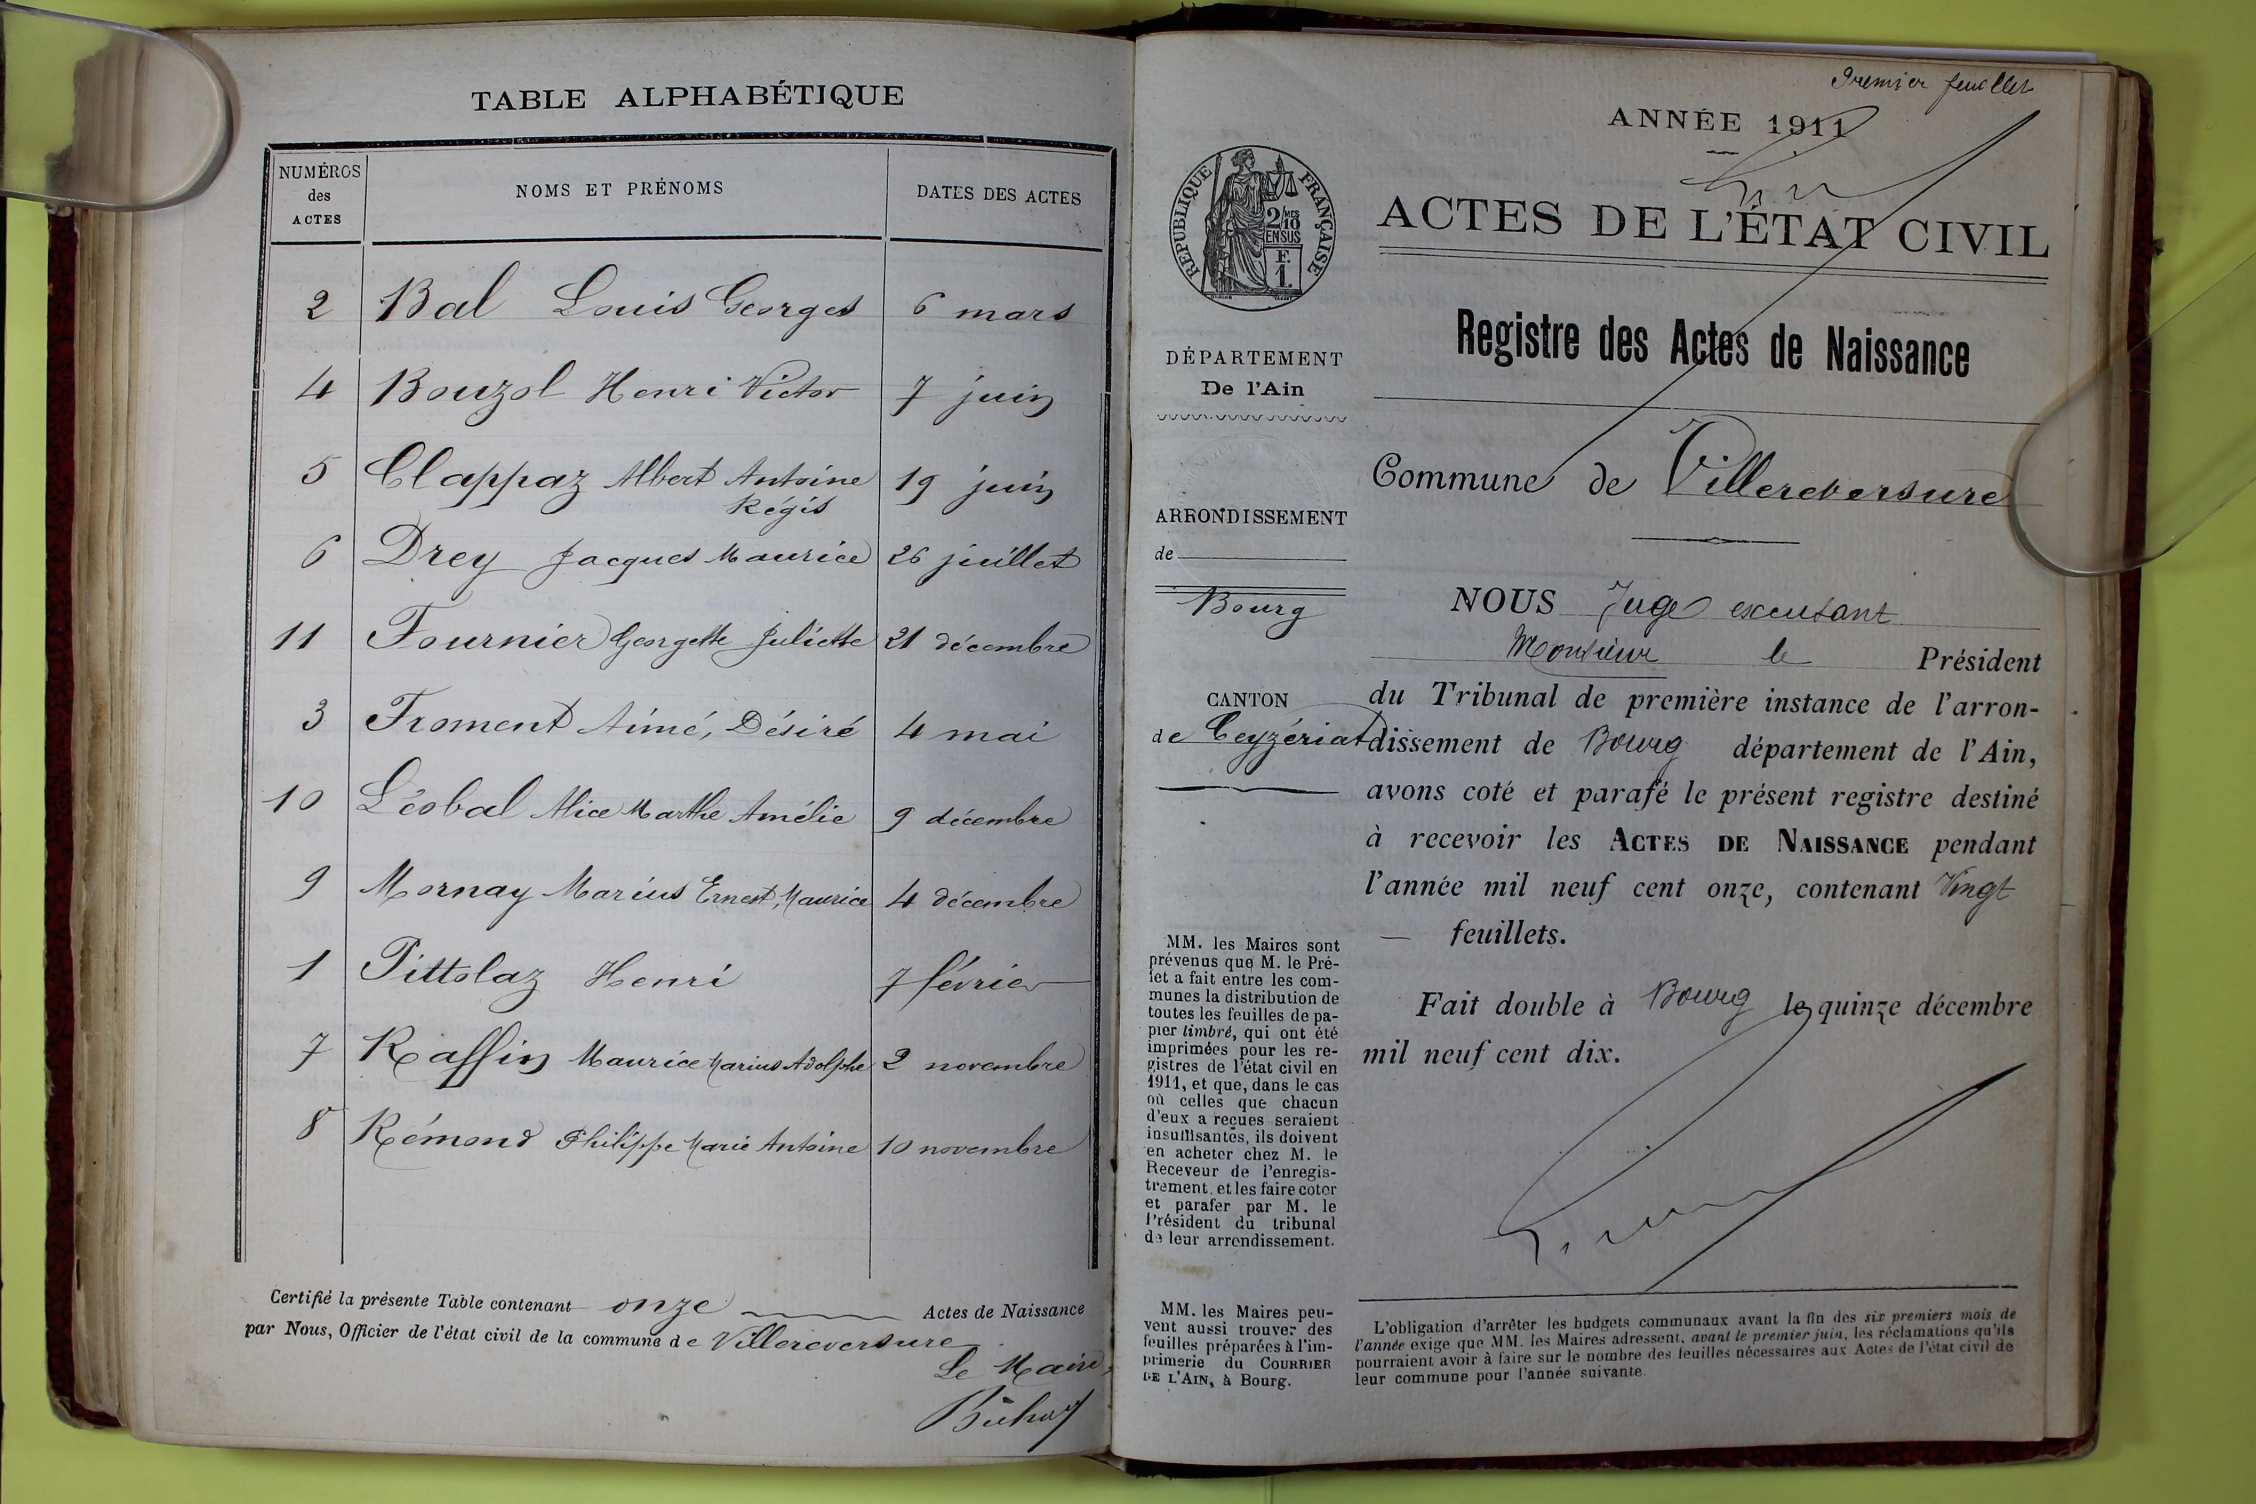 TABLE ALPHABÉTIQUE
NUMÉROS des ACTES NOMS ET PRÉNOMS DATES DES ACTES
2 Bal Louis Georges 6 mars
4 Bouzol Henri Victor 7 juin
5 Clappaz Albert Antoine 19 juin
Régis
6 Drey Jacques Maurice 26 juillet
11 Fournier Georgette Juliette 21 décembre
3 Froment Aimé, Désiré 4 mai
10 Léobal Alice Marthe Amélie 9 décembre
9 Mornay Marius Ernest, Maurice 4 décembre
1 Pittolaz Henri 7 février
7 Raffin Maurice Marius Adolphe 2 novembre
8 Rémond Philippe Marie Antoine 10 novembre
Certifié la présente Table contenant onze Actes de Naissance
par Nous, Officier de l'état civil de la commune de Villereversure
Le Maire,
Premier feuillet
ANNÉE 1911
RÉPUBLIQUE FRANÇAISE
2/10 MES
EN SUS
F.
1.
ACTES DE L'ÉTAT CIVIL
Registre des Actes de Naissance
DÉPARTEMENT
De l'Ain
Commune de Villereversure
ARRONDISSEMENT
de
Bourg
CANTON
de Ceyzériat
NOUS Juge excusant
Monsieur le Président
du Tribunal de première instance de l'arron-
dissement de Bourg département de l'Ain,
avons coté et parafé le présent registre destiné
à recevoir les ACTES DE NAISSANCE pendant
l'année mil neuf cent onze, contenant Vingt
— feuillets.
Fait double à Bourg le quinze décembre
mil neuf cent dix.
MM. les Maires sont
prévenus que M. le Pré-
fet a fait entre les com-
munes la distribution de
toutes les feuilles de pa-
pier timbré, qui ont été
imprimées pour les re-
gistres de l'état civil en
1911, et que, dans le cas
où celles que chacun
d'eux a reçues seraient
insuffisantes, ils doivent
en acheter chez M. le
Receveur de l'enregis-
trement, et les faire coter
et parafer par M. le
Président du tribunal
de leur arrondissement.
MM. les Maires peu-
vent aussi trouver des
feuilles préparées à l'im-
primerie du COURRIER
DE L'AIN, à Bourg.
L'obligation d'arrêter les budgets communaux avant la fin des six premiers mois de
l'année exige que MM. les Maires adressent, avant le premier juin, les réclamations qu'ils
pourraient avoir à faire sur le nombre des feuilles nécessaires aux Actes de l'état civil de
leur commune pour l'année suivante.